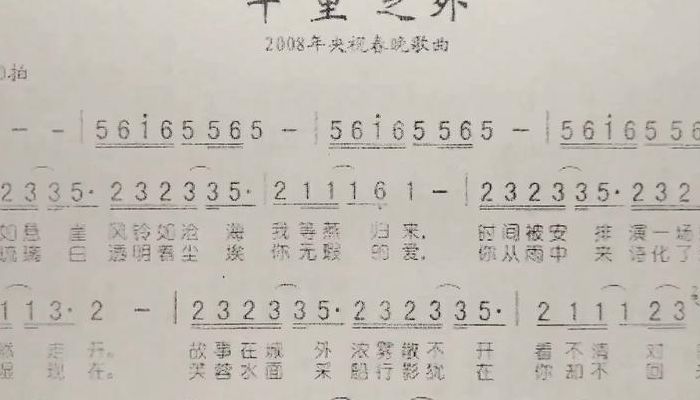 千里之外
2008年央视春晚歌曲
0拍
- - | 5 6 i 6 5 5 6 5 - | 5 6 i 6 5 5 6 5 - | 5 6 i 6 5 5 6
2 3 3 5· 2 3 2 3 3 5· | 2 1 1 1 6 1 - | 2 3 2 3 3 5· 2 3 2
如悬 崖 风铃如沧 海 我等燕 归来。 时间被安 排 演一场
琉璃 白 透明着尘 埃 你无瑕 的爱。 你从雨中 来 诗化了
1 1 3· 2 - | 2 3 2 3 3 5· 2 3 2 3 3 5· | 2 1 1 1 2 3
然 走开。 故事在城 外 浓雾散不 开 看不清 对
湿 现在。 芙蓉水面 采 船行影犹 在 你却不 回